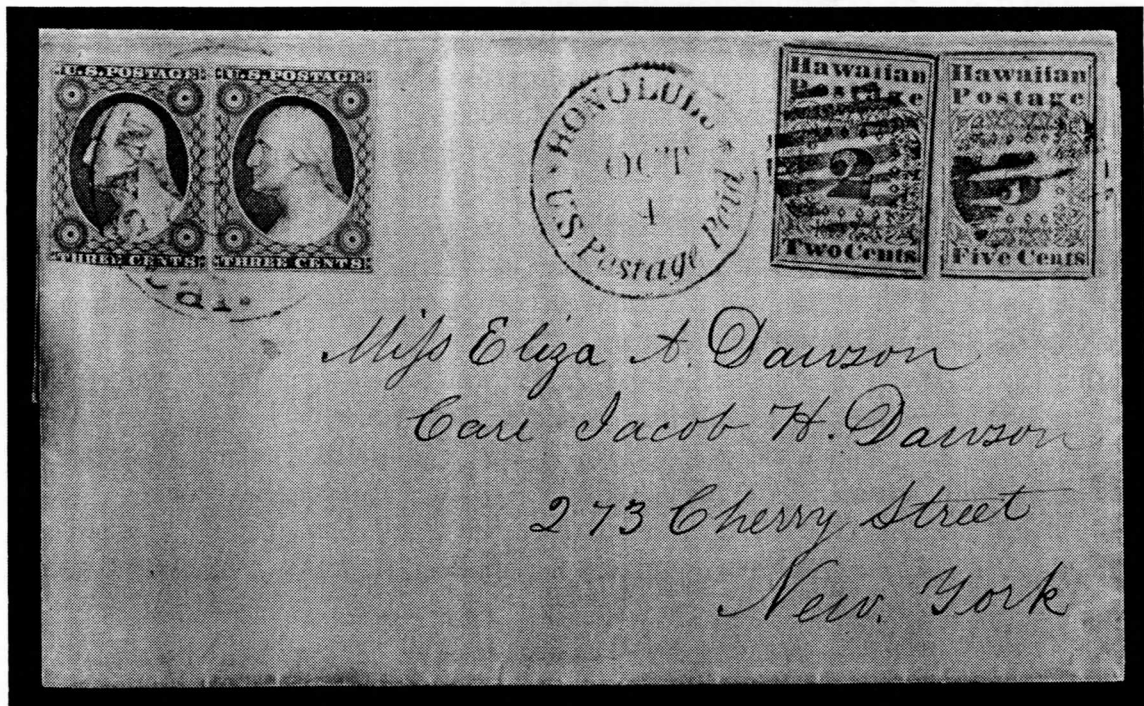 U.S. POSTAGE U.S. POSTAGE
THREE CENTS THREE CENTS
Cal.
HONOLULU * U.S. Postage Paid *
OCT
4
Hawaiian
Postage
2
Two Cents
Hawaiian
Postage
5
Five Cents
Miss Eliza A. Dawson
Care Jacob H. Dawson
273 Cherry Street
New. York